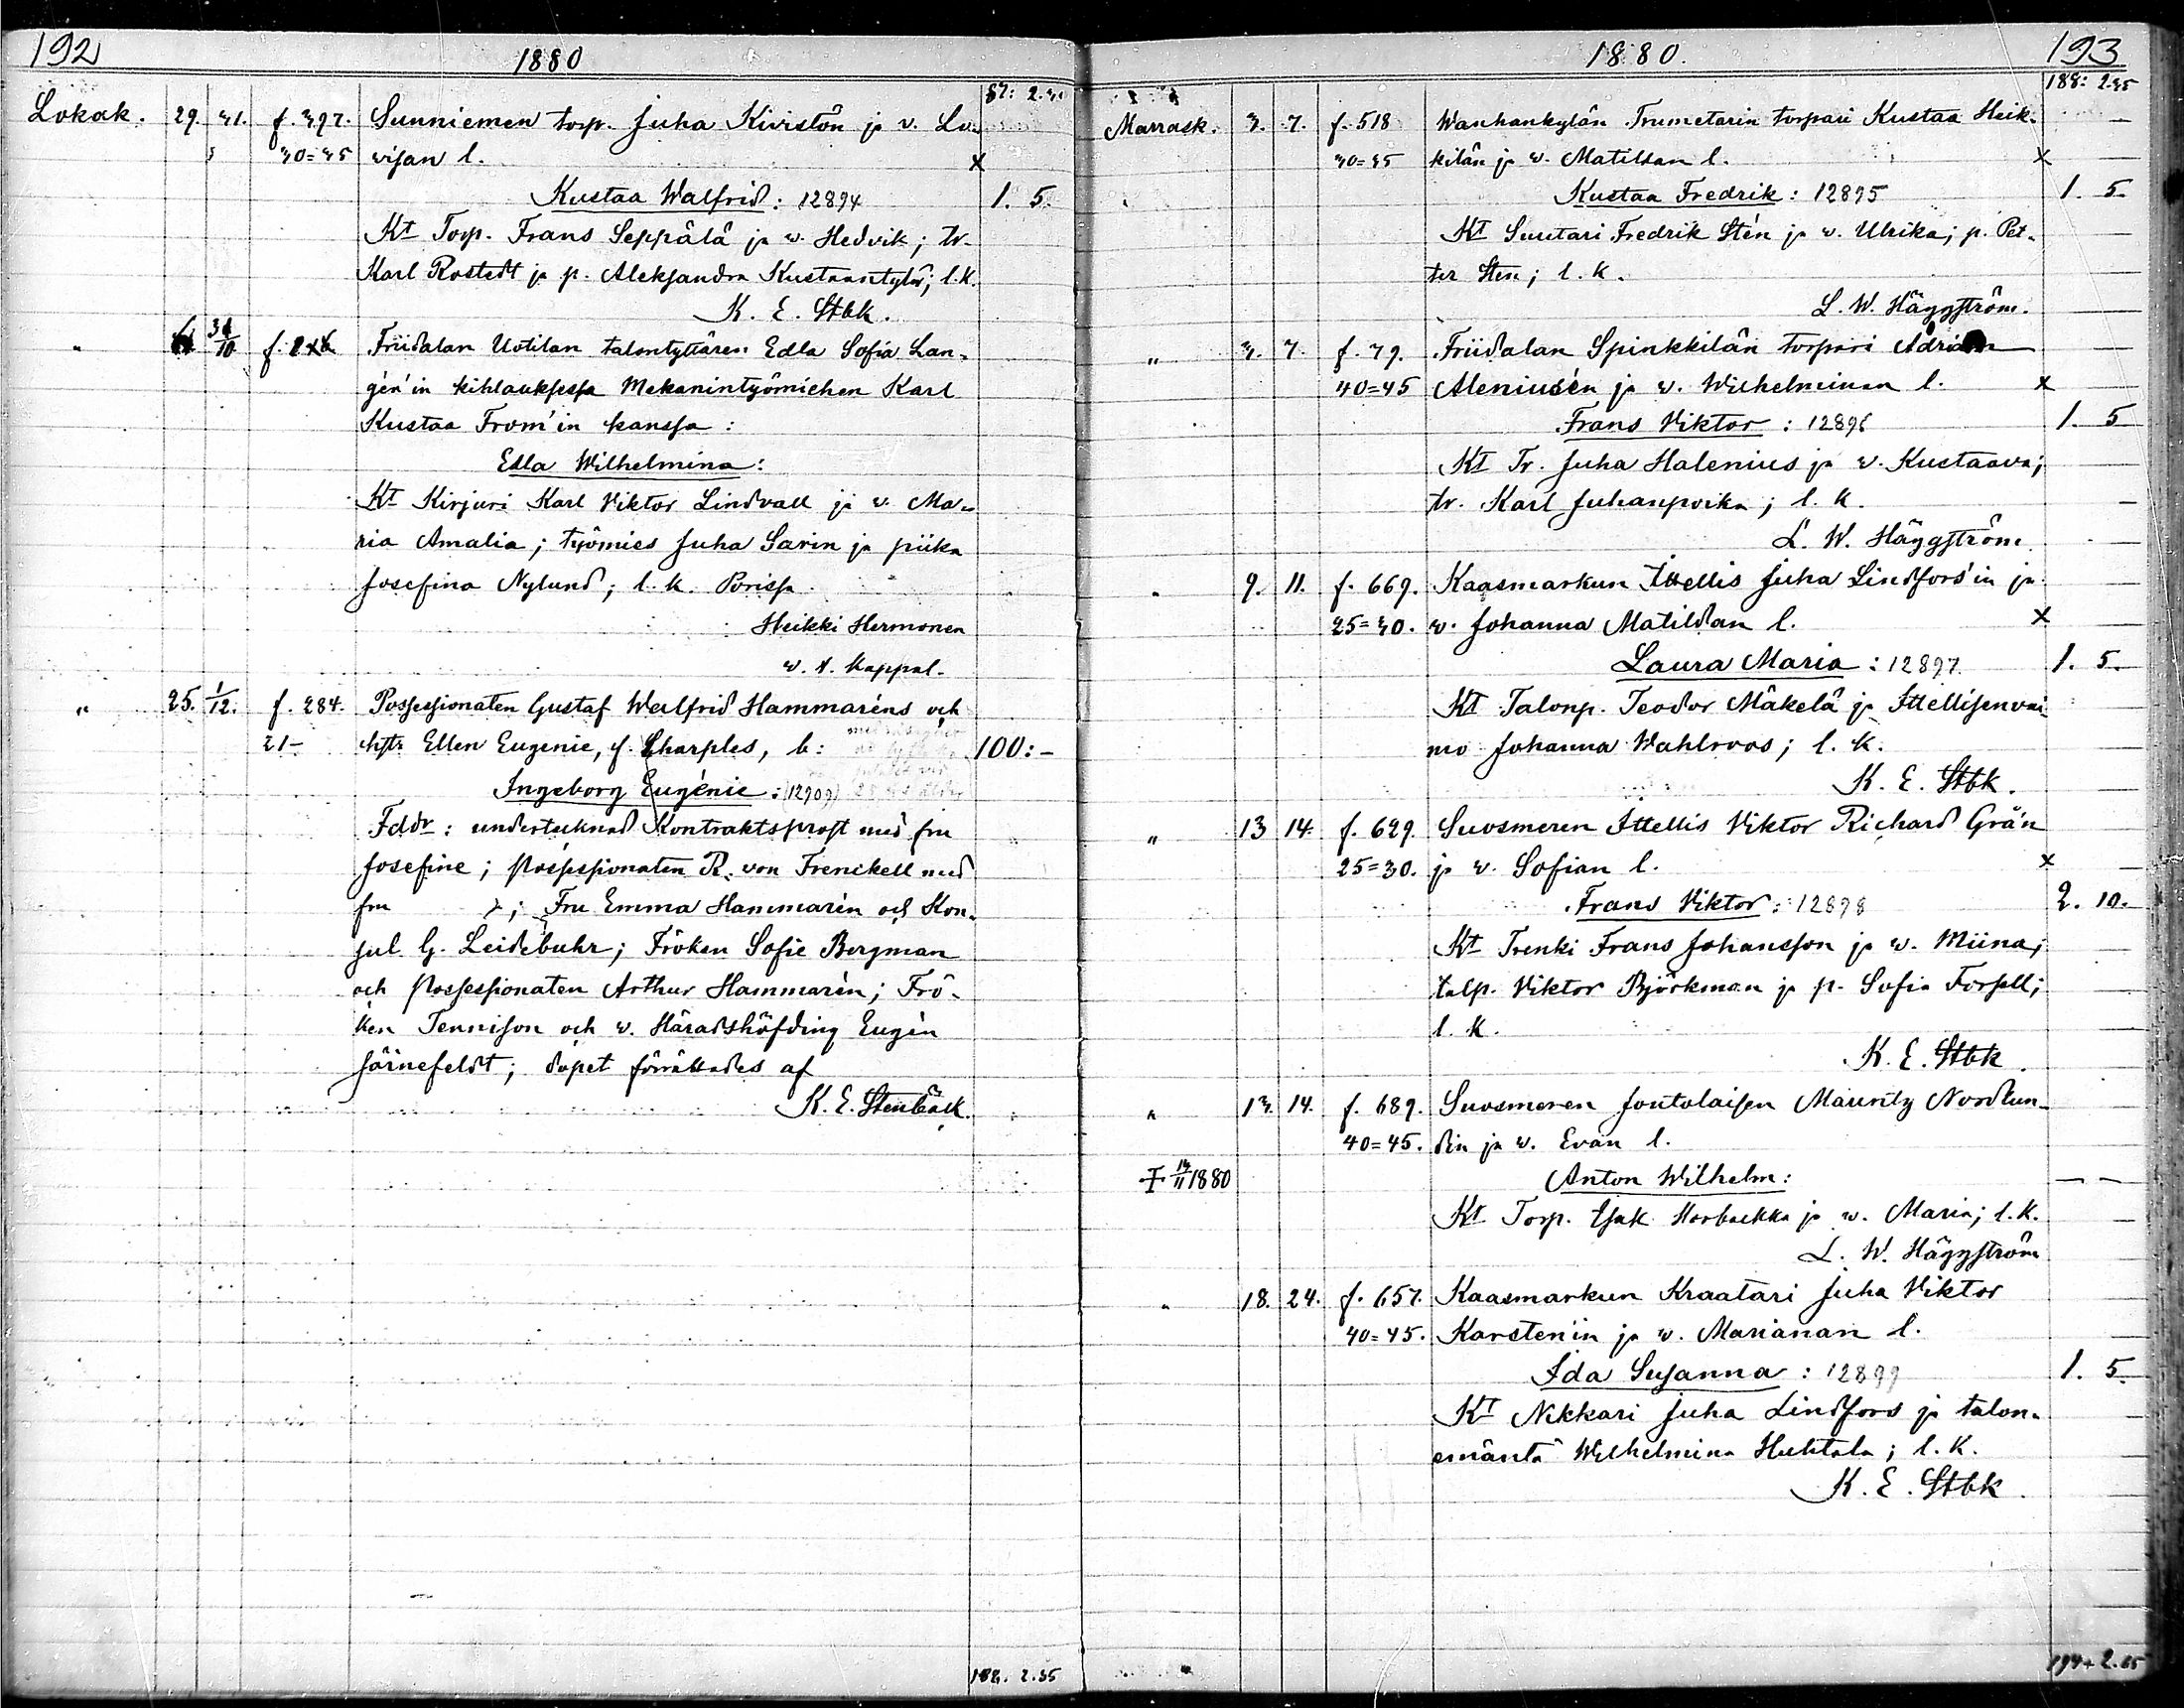 192
1880
87: 2.30
Lokak. 29. 31. f. 397. Sunniemen torp. Juha Kiviston ja v. Lo-
30=35 visan l. x
Kustaa Walfrid: 12894 1. 5.
Kt Torp. Frans Seppälä ja w. Hedvik; tr.
Karl Rostedt ja p. Aleksandra Kustaantytär; l.k.
K. E. Stbk.
" 31/10 f. Friidalan Uotilan talontyttären Edla Sofia Lan-
gén'in kihlauksessa Mekanintyömiehen Karl
Kustaa From'in kanssa:
Edla Wilhelmina:
Kt Kirjuri Karl Viktor Lindvall ja w. Ma-
ria Amalia; työmies Juha Sarin ja piika
Josefina Nylund; l. k. Porissa
Heikki Hermonen
v. t. Kappal.
" 25. 1/12. f. 284. Possessionaten Gustaf Walfrid Hammaréns och
21- hstr Ellen Eugenie, f. Sharples, b: 100:-
Ingeborg Eugénie: (12909)
Fddr: undertecknad Kontraktsprost med fru
Josefine; possessionaten R. von Frenckell med
fru ; Fru Emma Hammarén och Kon-
sul G. Leidebuhr; Fröken Sofie Bergman
och Possessionaten Arthur Hammarén; Frö-
ken Tennison och v. Häradshöfding Eugén
Järnefeldt; dopet förrättades af
K. E. Stenbäck.
188. 2.35
1880.
193
188: 2.35
Marrask. 3. 7. f. 518 Wanhankylän Trumetarin torpari Kustaa Heik-
30=35 kilän ja w. Matildan l. x
Kustaa Fredrik: 12895 1. 5.
Kt Suutari Fredrik Stén ja w. Ulrika; p. Pet-
ter Sten; l. k.
L. W. Häggström.
" 3. 7. f. 79. Friidalan Spinkkilän torpari Adrian
40=45 Aleniusén ja w. Wilhelmiinan l. x
Frans Viktor: 12896 1. 5
Kt Tr. Juha Halenius ja w. Kustaava;
tr. Karl Juhanpoika; l. k.
L. W. Häggström.
" 9. 11. f. 669. Kaasmarkun Ittellis Juha Lindfors'in ja
25=30. w. Johanna Matildan l. x
Laura Maria: 12897 1. 5.
Kt Talonp. Teodor Mäkelä ja Ittellisenvai
mo Johanna Wahlroos; l. k.
K. E. Stbk.
" 13 14. f. 629. Suosmeren Ittellis Viktor Richard Grän
25=30. ja w. Sofian l. x
Frans Viktor: 12898 2. 10.
Kt Trenki Frans Johansson ja w. Miina;
talp. Viktor Björkman ja p. Sofia Forsell;
l. k.
K. E. Stbk.
" 13. 14. f. 689. Suosmeren Joutolaisen Mauritz Nordlun-
40=45. din ja w. Evan l.
† 14/11 1880 Anton Wilhelm: — —
Kt Torp. Isak Horbackka ja w. Maria; l. k.
L. W. Häggström
" 18. 24. f. 657. Kaasmarkun Kraatari Juha Viktor
40=45. Karsten'in ja w. Marianan l.
Ida Susanna: 12899 1. 5.
Kt Nikkari Juha Lindfors ja talon-
emäntä Wilhelmina Huhtala; l. k.
K. E. Stbk.
194+2.65